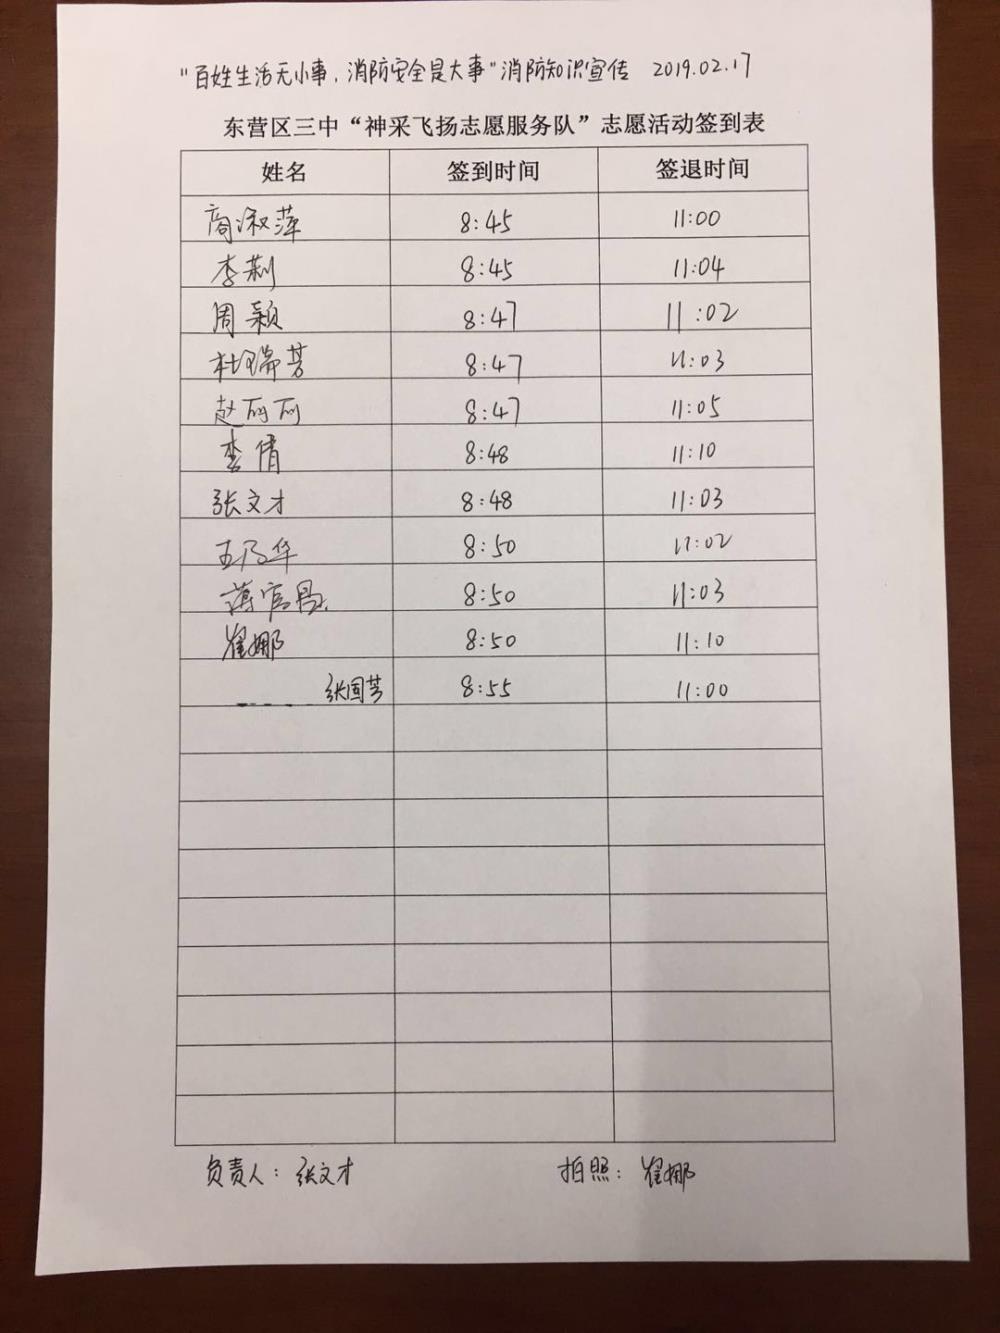 "百姓生活无小事，消防安全是大事"消防知识宣传 2019.02.17
东营区三中“神采飞扬志愿服务队”志愿活动签到表
姓名 签到时间 签退时间
商淑萍 8:45 11:00
李莉 8:45 11:04
周颖 8:47 11:02
杜瑞芳 8:47 11:03
赵丽丽 8:47 11:05
李倩 8:48 11:10
张文才 8:48 11:03
王乃华 8:50 11:02
蒋官昌 8:50 11:03
翟娜 8:50 11:10
张国芳 8:55 11:00
负责人：张文才 拍照：翟娜